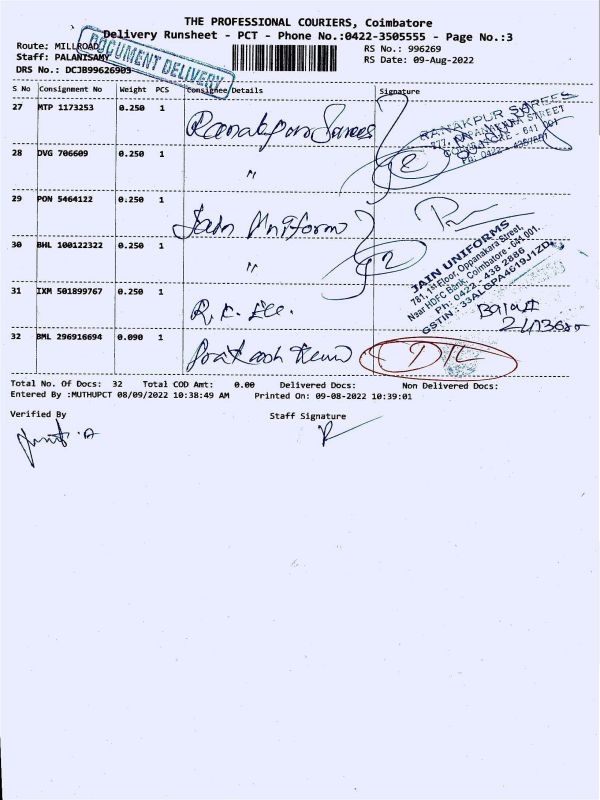 THE PROFESSIONAL COURIERS, Coimbatore
Delivery Runsheet - PCT - Phone No.:0422-3505555 - Page No.:3
Route: MILLROAD
Staff: PALANISAMY
DRS No.: DCJB99626909
DOCUMENT DELIVERY
RS No.: 996269
RS Date: 09-Aug-2022
S No Consignment No Weight PCS Consignee Details Signature
27 MTP 1173253 0.250 1 Ranakpur Sarees
RANAKPUR SAREES
STREET
28 DVG 706609 0.250 1 "
29 PON 5464122 0.250 1 Jain Uniform
30 BHL 100122322 0.250 1 "
JAIN UNIFORMS
781, 1st Floor, Oppanakara Street,
Near HDFC Bank, Coimbatore - 641 001.
Ph: 0422 - 438 2886
GSTIN : 33ALGPA4619J1ZD
31 IXM 501899767 0.250 1 R.K.
32 BML 296916694 0.090 1 Prakash
Total No. Of Docs: 32 Total COD Amt: 0.00 Delivered Docs: Non Delivered Docs:
Entered By :MUTHUPCT 08/09/2022 10:38:49 AM Printed On: 09-08-2022 10:39:01
Verified By Staff Signature